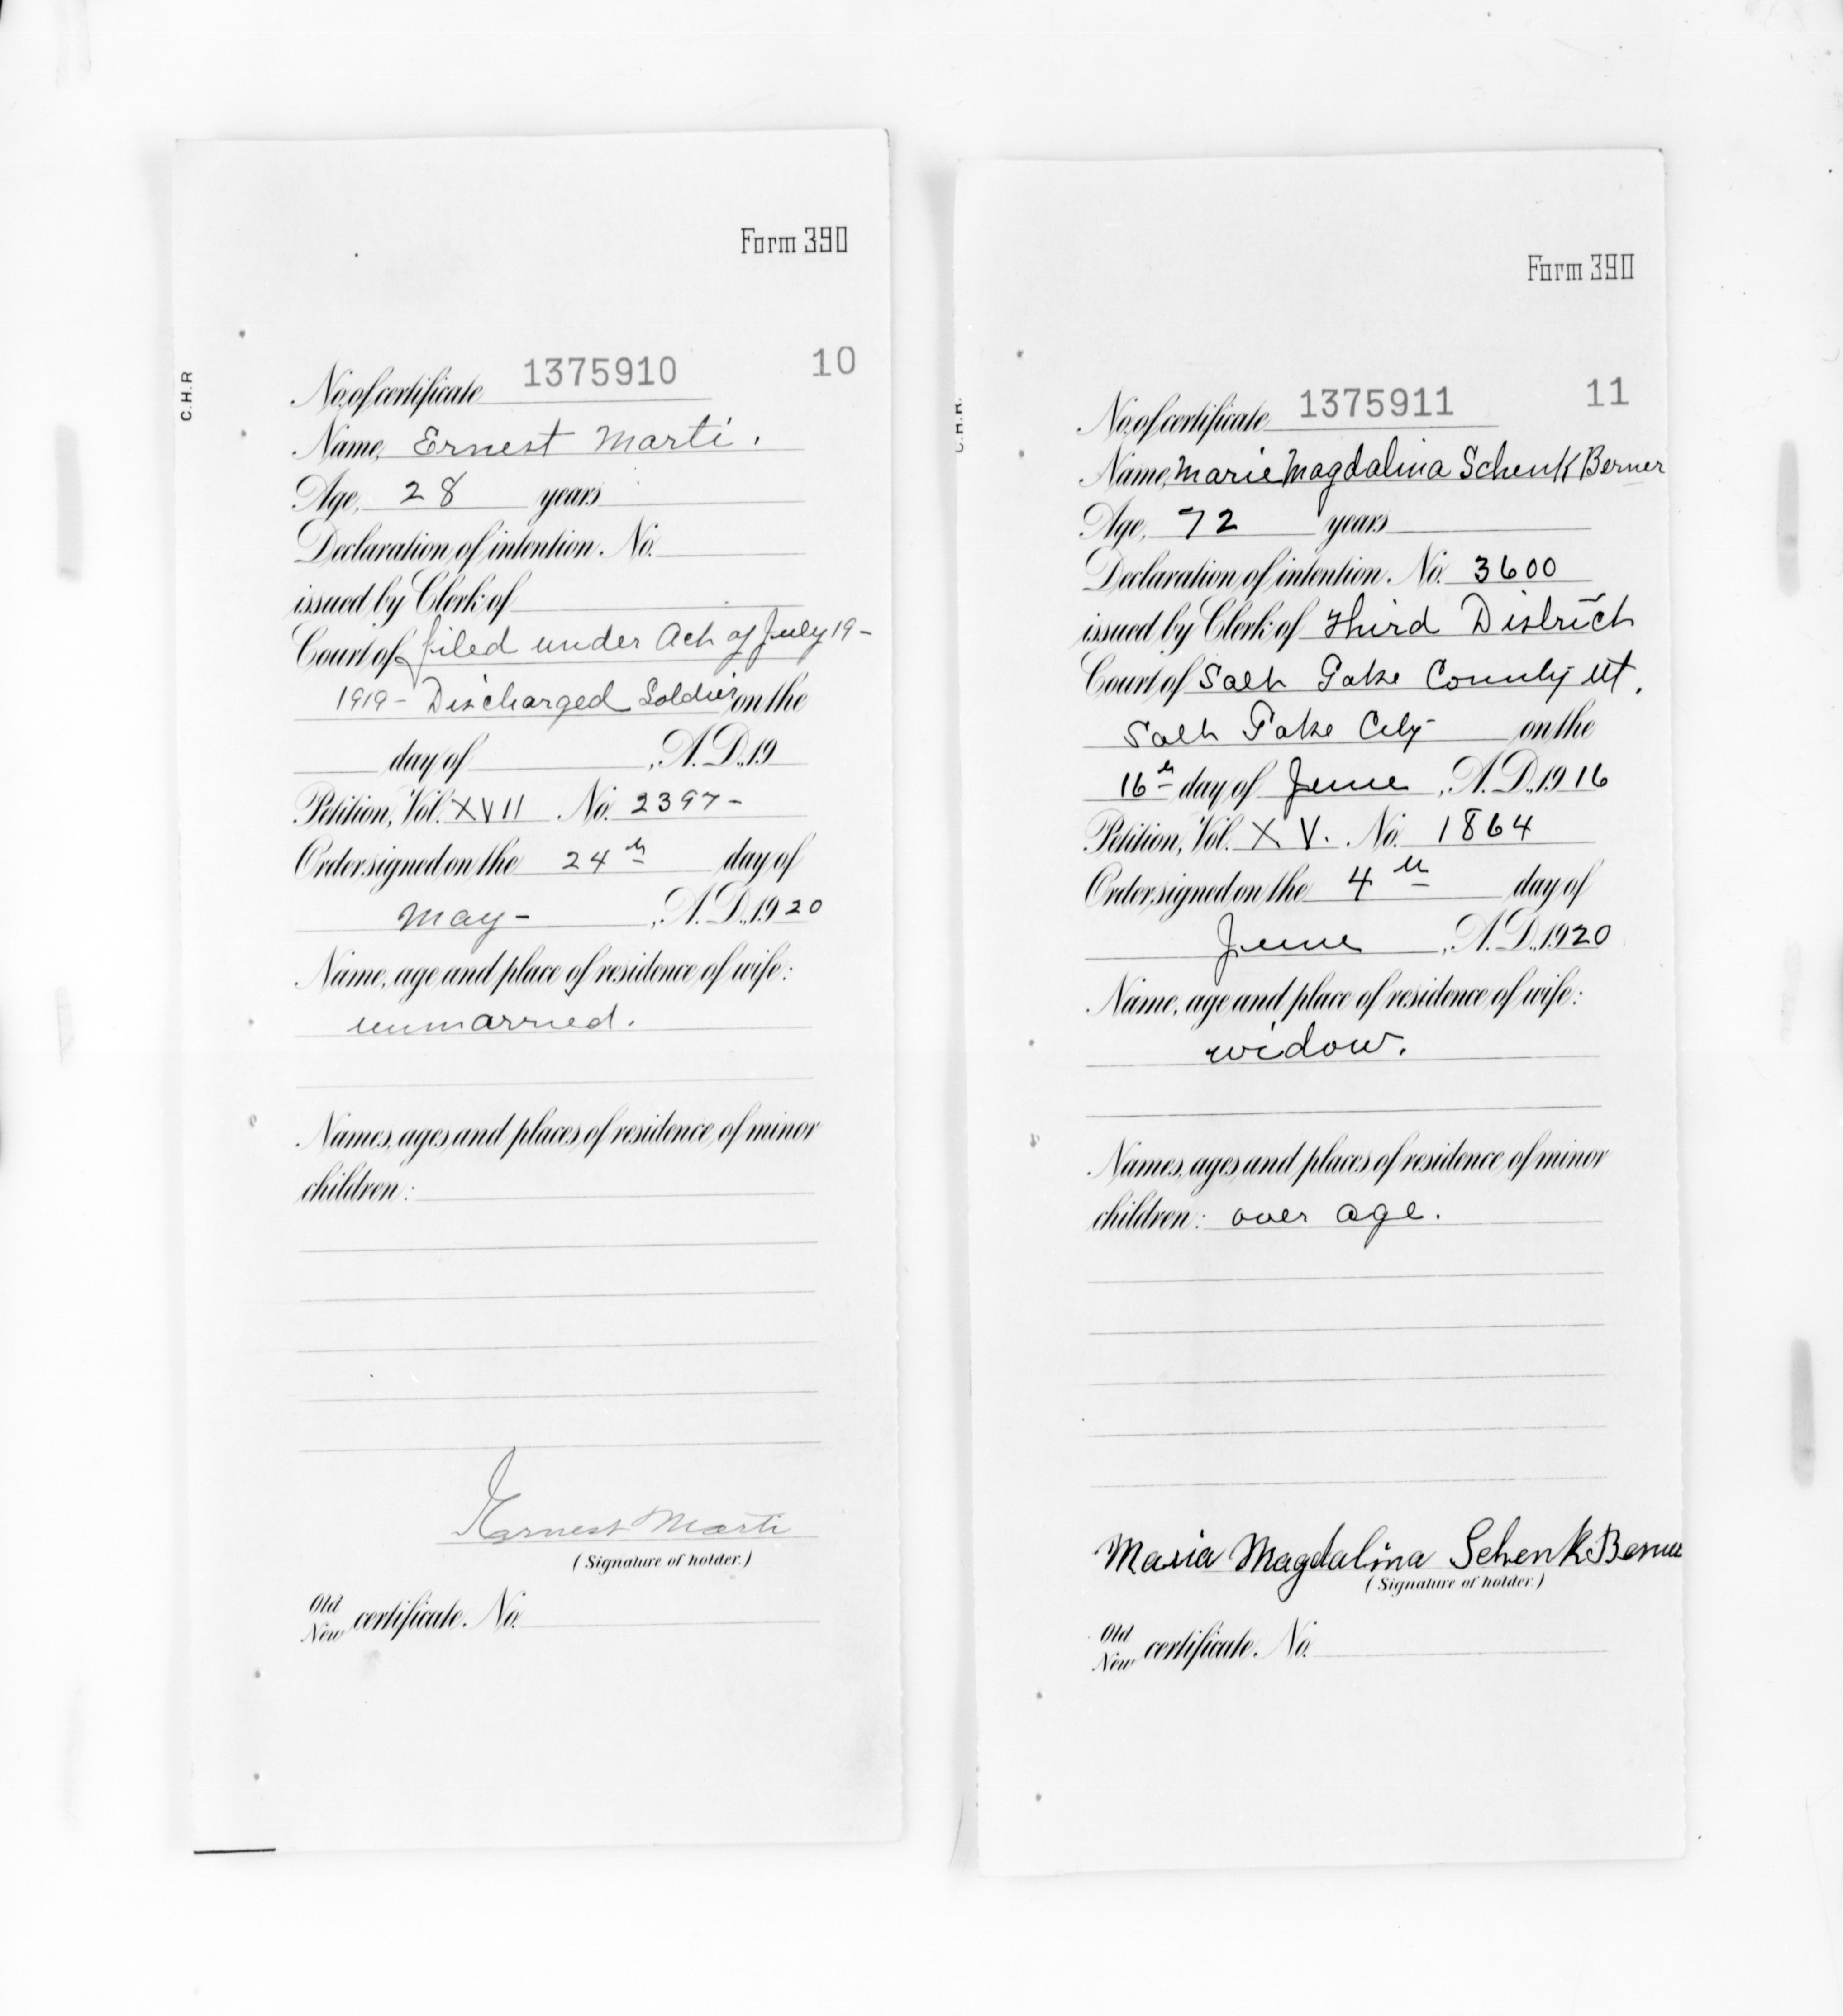 Form 390
C.H.R
No. of certificate 1375910 10
Name, Ernest Marti.
Age, 28 years
Declaration of intention. No.
issued by Clerk of
Court of filed under Act of July 19-
1919- Discharged Soldier on the
day of , A.D., 19
Petition, Vol. XVII No. 2397-
Order signed on the 24th day of
May- , A.D., 1920
Name, age and place of residence of wife:
unmarried.
Names, ages and places of residence of minor
children:
Ernest Marti
(Signature of holder.)
Old
New certificate. No.
Form 390
C.H.R.
No. of certificate 1375911 11
Name, Marie Magdalina Schenk Berner
Age, 72 years
Declaration of intention. No. 3600
issued by Clerk of Third District
Court of Salt Lake County Ut.
Salt Lake City- on the
16th day of June , A.D., 1916
Petition, Vol. XV. No. 1864
Order signed on the 4th day of
June , A.D., 1920
Name, age and place of residence of wife:
widow.
Names, ages and places of residence of minor
children: over age.
Maria Magdalina Schenk Berner
(Signature of holder.)
Old
New certificate. No.